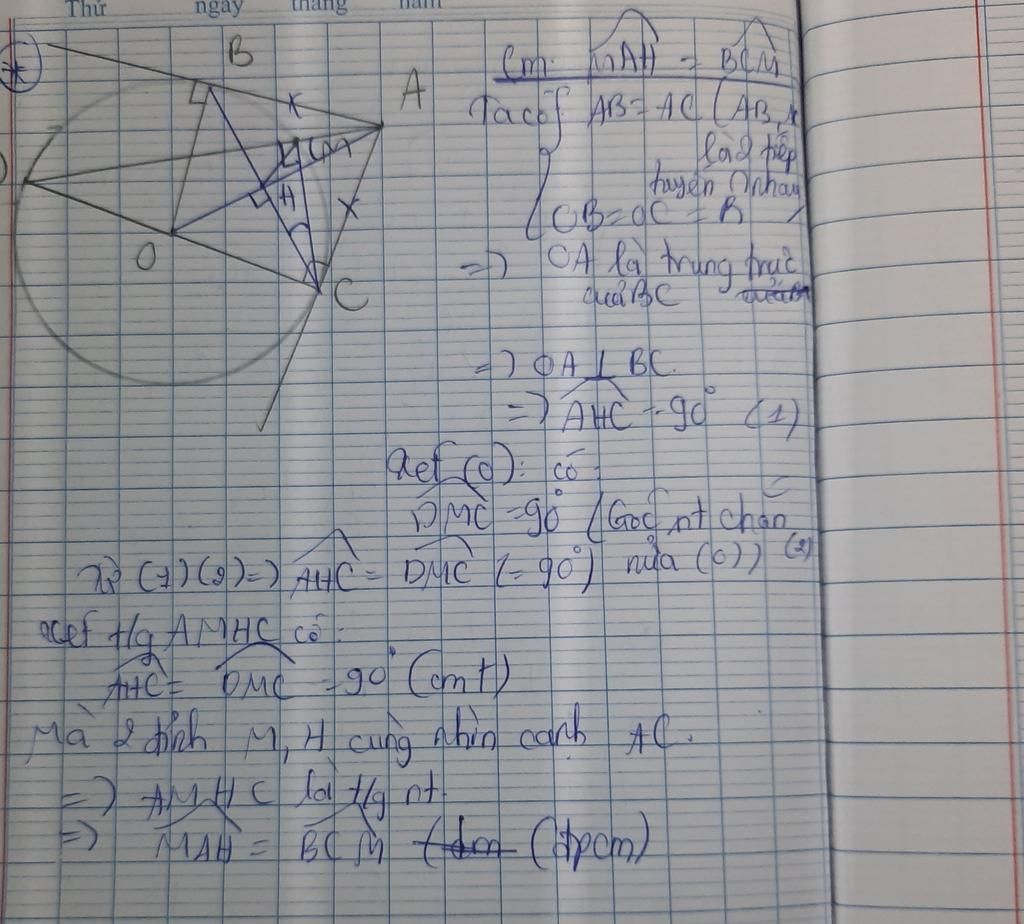 Thứ ngày tháng năm
*
B
A
x
M
H
x
O
C
Cm: MAH = BCM
Ta có { AB = AC (AB,
là 2 tiếp
tuyến nhau
OB = OC = R
=> OA là trung trực
của BC
=> OA ⊥ BC.
=> AHC = 90° (1)
xét (O): có
DMC = 90° (Góc nt chắn
nửa (O)) (2)
Từ (1) (2) => AHC = DMC (= 90°)
xét t/g AMHC có:
AHC = DMC = 90° (cmt)
Mà 2 đỉnh M, H cùng nhìn cạnh AC.
=> AMHC là t/g nt.
=> MAH = BCM (đpcm)